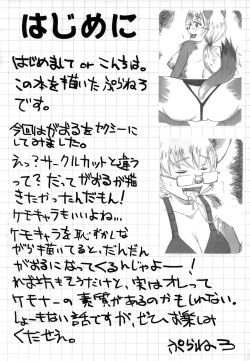 はじめに
はじめまして or こんちは。
この本を描いたぷらねろ
です。
今回はがおるをセクシーに
してみました。
えっ?サークルカットと違う
って?だってがおるが描
きたかったんだもん!
ケモキャラもいいよね…
ケモキャラを恥ずかしな
がら描いてると、だんだん
がおるになってくるんじゃよー!
れば坊もそうだけど、実はオレって
ケモナーの素質があるのかもしれない。
しょーもない話ですが、ぜひお楽しみ
くだせえ。
ぷらねろ